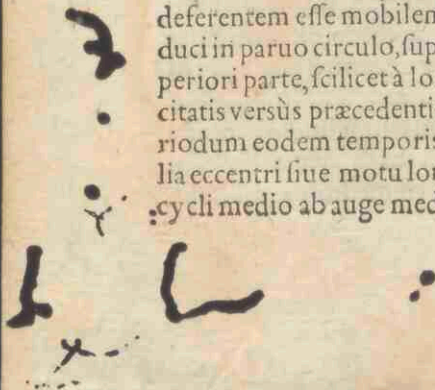 deferentem esse mobilem
duci in paruo circulo, sup
periori parte, scilicet à lo
citatis versùs præcedenti
riodum eodem temporis
lia eccentri siue motu lon
cycli medio ab auge med